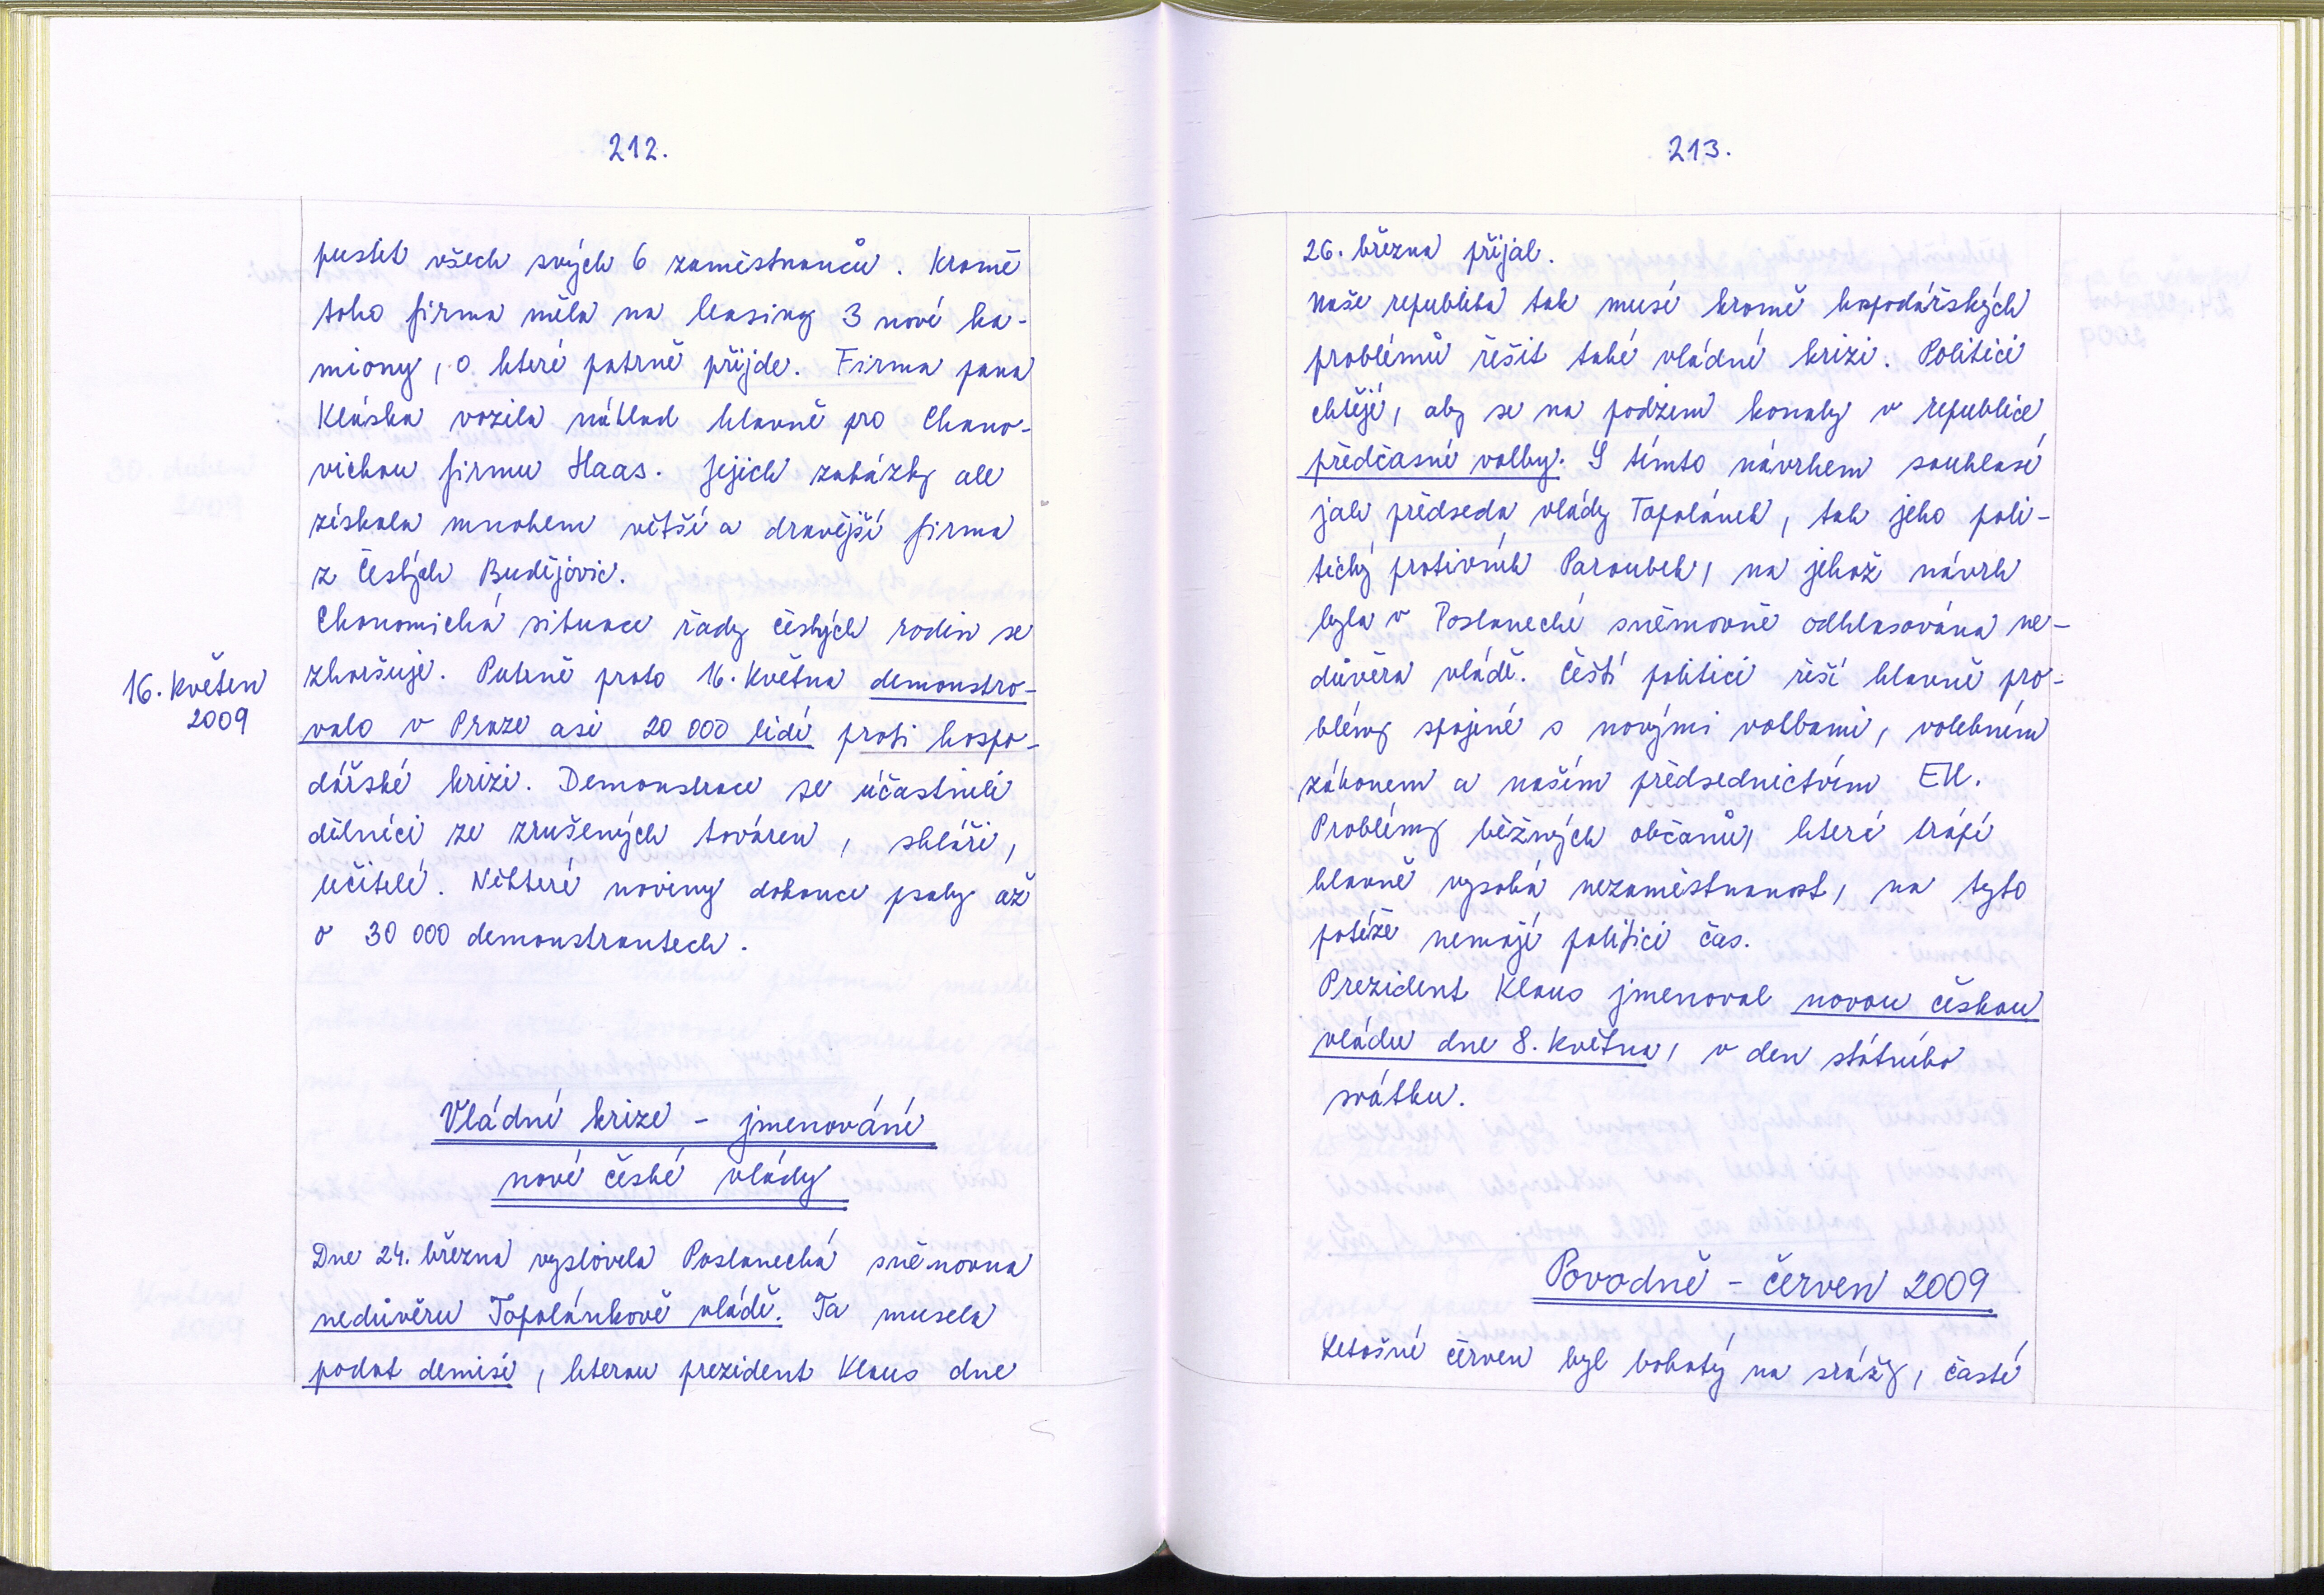 212.
pustit všech svých 6 zaměstnanců. Kromě
toho firma měla na leasing 3 nové ka-
miony, o které patrně přijde. Firma pana
Kláska vozila náklad hlavně pro Chano-
vickou firmu Haas. Jejich zakázky ale
získala mnohem větší a dravější firma
z Českých Budějovic.
Ekonomická situace řady českých rodin se
zhoršuje. Patrně proto 16. května demonstro-
16. květen
2009
valo v Praze asi 20 000 lidí proti hospo-
dářské krizi. Demonstrace se účastnili
dělníci ze zrušených továren, skláři,
učitelé. Některé noviny dokonce psaly až
o 30 000 demonstrantech.
Vládní krize - jmenování
nové české vlády
Dne 24. března vyslovila Poslanecká sněmovna
nedůvěru Topolánkově vládě. Ta musela
podat demisi, kterou prezident Klaus dne
213.
26. března přijal.
Naše republika tak musí kromě hospodářských
problémů řešit také vládní krizi. Politici
chtějí, aby se na podzim konaly v republice
předčasné volby. S tímto návrhem souhlasí
jak předseda vlády Topolánek, tak jeho poli-
tický protivník Paroubek, na jehož návrh
byla v Poslanecké sněmovně odhlasována ne-
důvěra vládě. Čeští politici řeší hlavně pro-
blémy spojené s novými volbami, volebním
zákonem a naším předsednictvím EU.
Problémy běžných občanů, které trápí
hlavně vysoká nezaměstnanost, na tyto
potíže nemají politici čas.
Prezident Klaus jmenoval novou českou
vládu dne 8. května, v den státního
svátku.
Povodně - červen 2009
Letošní červen byl bohatý na srážky, časté